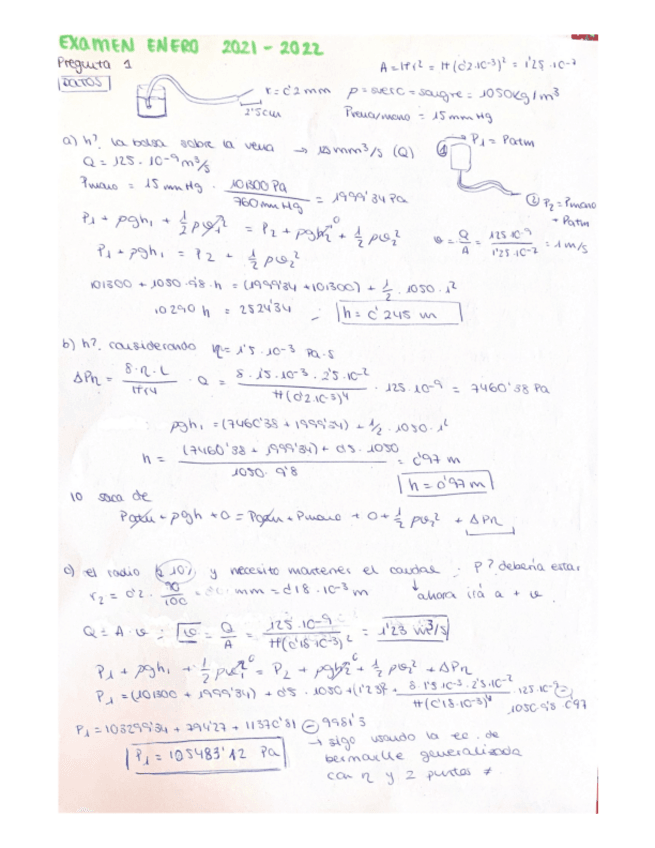 EXAMEN ENERO 2021-2022
Pregunta 1
A = πr² = π(0'2·10⁻³)² = 1'25·10⁻⁷
DATOS
r = 0'2 mm
ρ = suero = sangre = 1050 kg/m³
2'5 cm
Pvena/mano = 15 mm Hg
a) h? la bolsa sobre la vena → mm³/s (Q)
① P₁ = Patm
Q = 125·10⁻⁹ m³/s
Pmano = 15 mmHg · 101300 Pa / 760 mmHg = 1999'34 Pa
② P₂ = Pmano + Patm
P₁ + ρgh₁ + ½ρv₁²⁰ = P₂ + ρgh₂⁰ + ½ρv₂²
v = Q/A = 125·10⁻⁹ / 1'25·10⁻⁷ = 1 m/s
P₁ + ρgh₁ = P₂ + ½ρv₂²
101300 + 1050·9'8·h = (1999'34 + 101300) + ½·1050·1²
10290 h = 2524'34 ; h = 0'245 m
b) h? considerando η = 1'5·10⁻³ Pa·s
ΔPη = 8·η·L / πr⁴ · Q = 8·1'5·10⁻³·2'5·10⁻² / π(0'2·10⁻³)⁴ · 125·10⁻⁹ = 7460'38 Pa
ρgh₁ = (7460'38 + 1999'34) + ½·1050·1²
h = (7460'38 + 1999'34) + 0'5·1050 / 1050·9'8 = 0'97 m
h = 0'97 m
lo saca de
Patm + ρgh + 0 = Patm + Pmano + 0 + ½ρv₂² + ΔPη
c) el radio 10% y necesito mantener el caudal : P? debería estar
r₂ = 0'2 · 90/100 = mm = 0'18·10⁻³ m
↓ ahora irá a + v.
Q = A·v ; v = Q/A = 125·10⁻⁹ / π(0'18·10⁻³)² = 1'23 m/s
P₁ + ρgh₁ + ½ρv₁²⁰ = P₂ + ρgh₂⁰ + ½ρv₂² + ΔPη
P₁ = (101300 + 1999'34) + 0'5·1050·(1'23)² + 8·1'5·10⁻³·2'5·10⁻² / π(0'18·10⁻³)⁴ · 125·10⁻⁹ − 1050·9'8·0'97
P₁ = 103299'34 + 794'27 + 11370'81 − 9981'3
P₁ = 105483'12 Pa
→ sigo usando la ec. de
bernouille generalizada
con η y 2 puntos ≠.